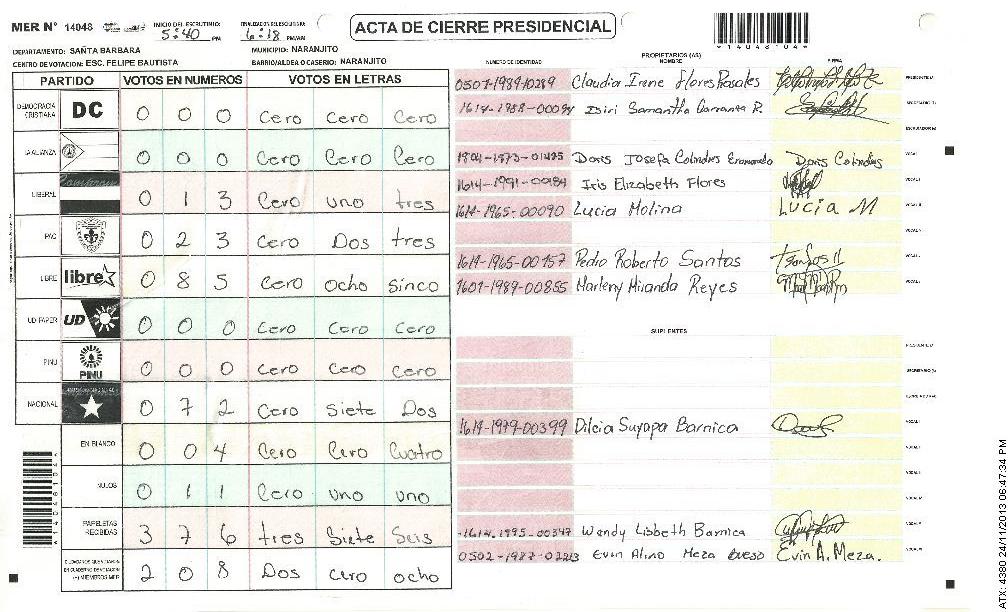 MER Nº 14048 INICIO DEL ESCRUTINIO: 5:40 PM FINALIZACION DEL ESCRUTINIO: 6:18 PM/AM ACTA DE CIERRE PRESIDENCIAL
*14048104*
DEPARTAMENTO: SAÑTA BARBARA MUNICIPIO: NARANJITO
CENTRO DE VOTACION: ESC. FELIPE BAUTISTA BARRIO/ALDEA O CASERIO: NARANJITO
PARTIDO VOTOS EN NUMEROS VOTOS EN LETRAS
DEMOCRACIA CRISTIANA DC 0 0 0 Cero Cero Cero
LA ALIANZA 0 0 0 Cero Cero Cero
LIBERAL 0 1 3 Cero uno tres
PAC 0 2 3 Cero Dos tres
LIBRE libre 0 8 5 Cero ocho Sinco
UD FAPER UD 0 0 0 Cero Cero Cero
PINU PINU 0 0 0 Cero Cero Cero
NACIONAL 0 7 2 Cero Siete Dos
EN BLANCO 0 0 4 Cero Cero Cuatro
NULOS 0 1 1 Cero uno uno
PAPELETAS RECIBIDAS 3 7 6 tres Siete Seis
(+) MIEMBROS MER 2 0 8 Dos cero ocho
NUMERO DE IDENTIDAD PROPIETARIOS (AS) NOMBRE FIRMA
0507-1989-10289 Claudia Irene Flores Rosales PRESIDENTE/A
1614-1988-00094 Isiri Samantha R. SECRETARIO (A)
ESCRUTADOR (A)
1804-1573-01495 Doris Josefa Colindres Doris Colindres VOCAL I
1614-1991-00984 Iris Elizabeth Flores
1614-1965-00090 Lucia Molina Lucia M
1619-1965-00157 Pedro Roberto Santos
1607-1989-00855 Marleny Miranda Reyes
SUPLENTES
PRESIDENTE/A
SECRETARIO (A)
1614-1979-00399 Dilcia Suyapa Barnica VOCAL I
1614-1995-00347 Wendy Lisbeth Barnica
0502-1987-02213 Evin Alino Meza Bueso Evin A. Meza.
ATX: 4380 24/11/2013 06:47:34 PM